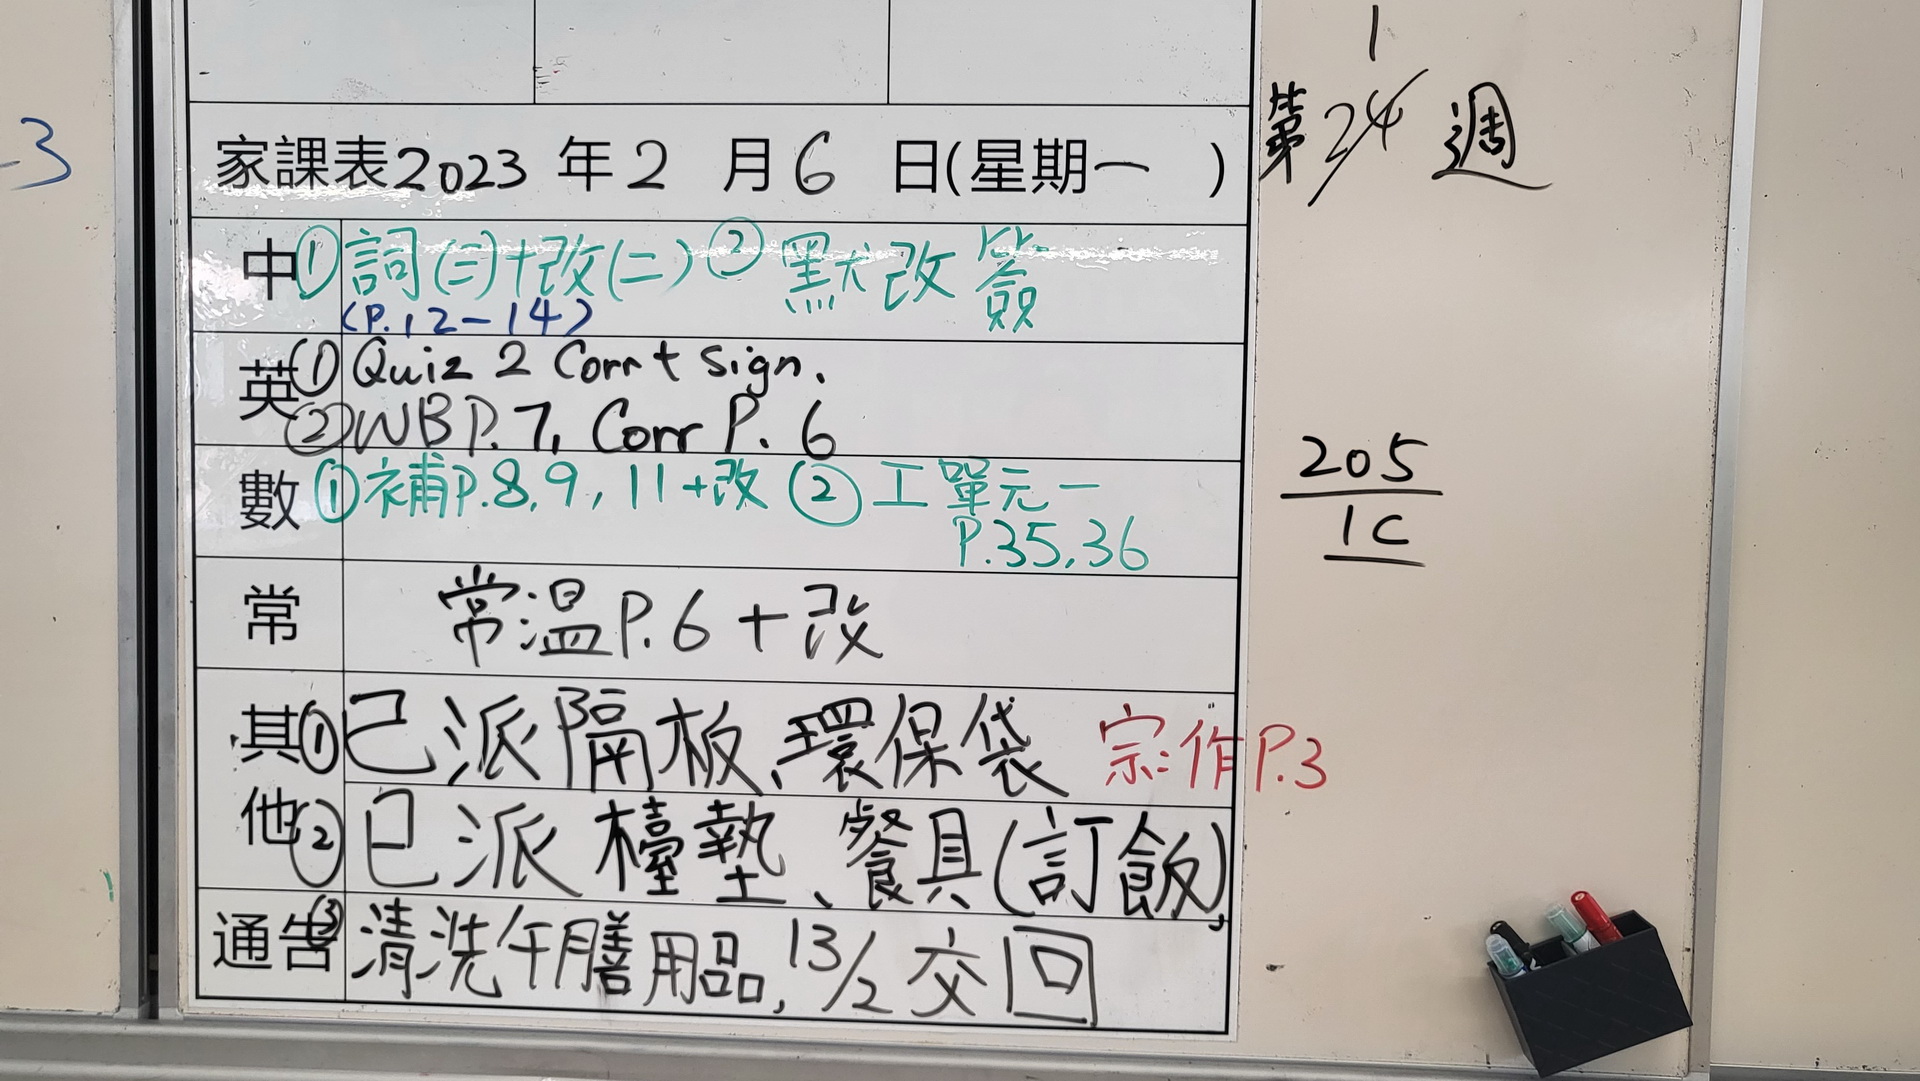 1
第24週
-3
家課表2023年2月6日(星期一)
中①詞(三)+改(二)②默改簽
(P.12-14)
英①Quiz 2 Corr + sign.
②WB P.7, Corr P. 6
數①補P.8,9,11+改②工單元一
P.35,36
205
1C
常 常溫P.6+改
其他①已派隔板、環保袋 宗:作P.3
②已派檯墊、餐具(訂飯),
通告③清洗午膳用品,13/2交回